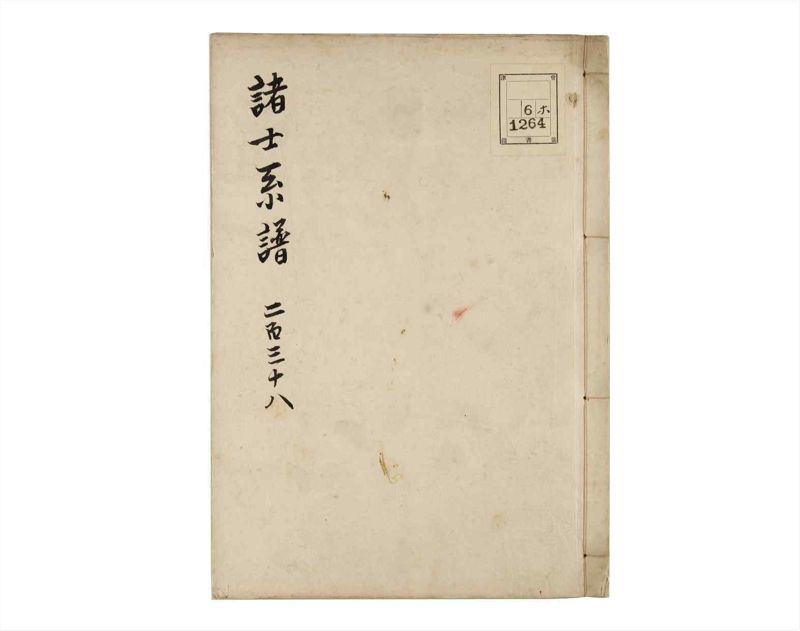 諸士系譜 二百三十八
6 ホ
1264